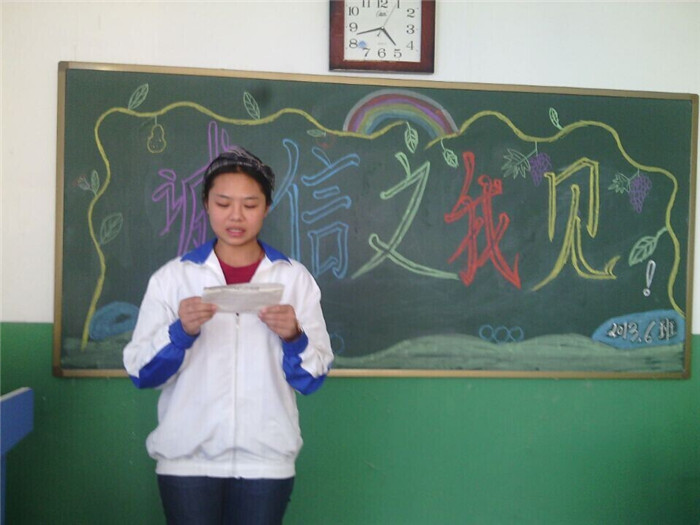 12
10
9
8
7
6
5
4
3
诚信之我见!
2013.6班